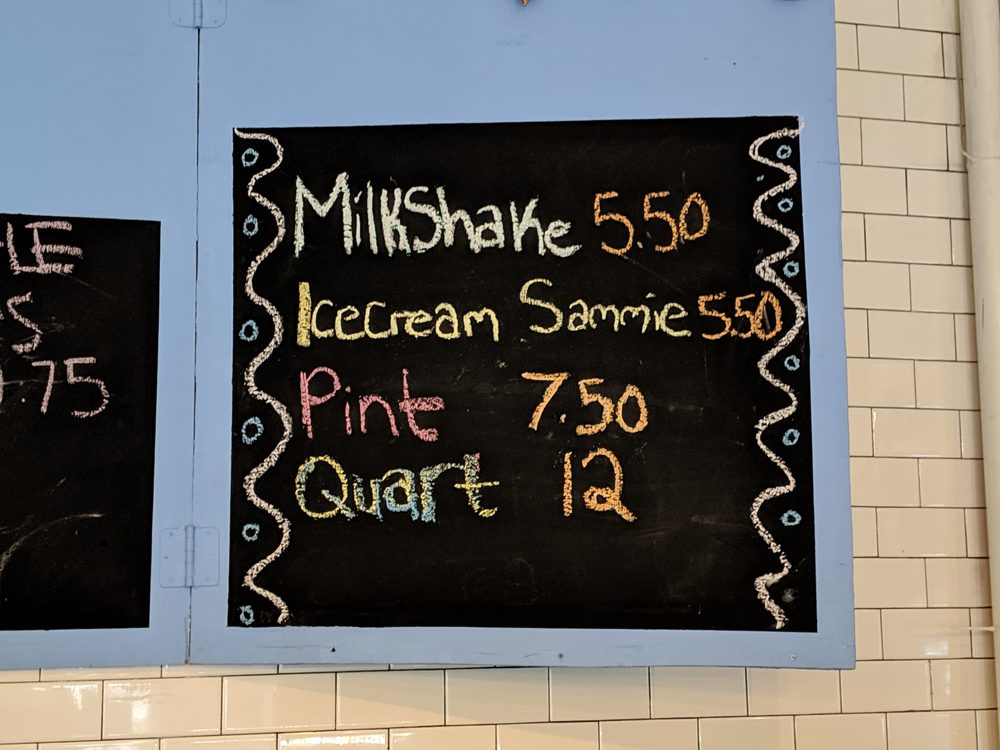 LE
S
.75
Milkshake 5.50
Icecream Sammie 5.50
Pint 7.50
Quart 12